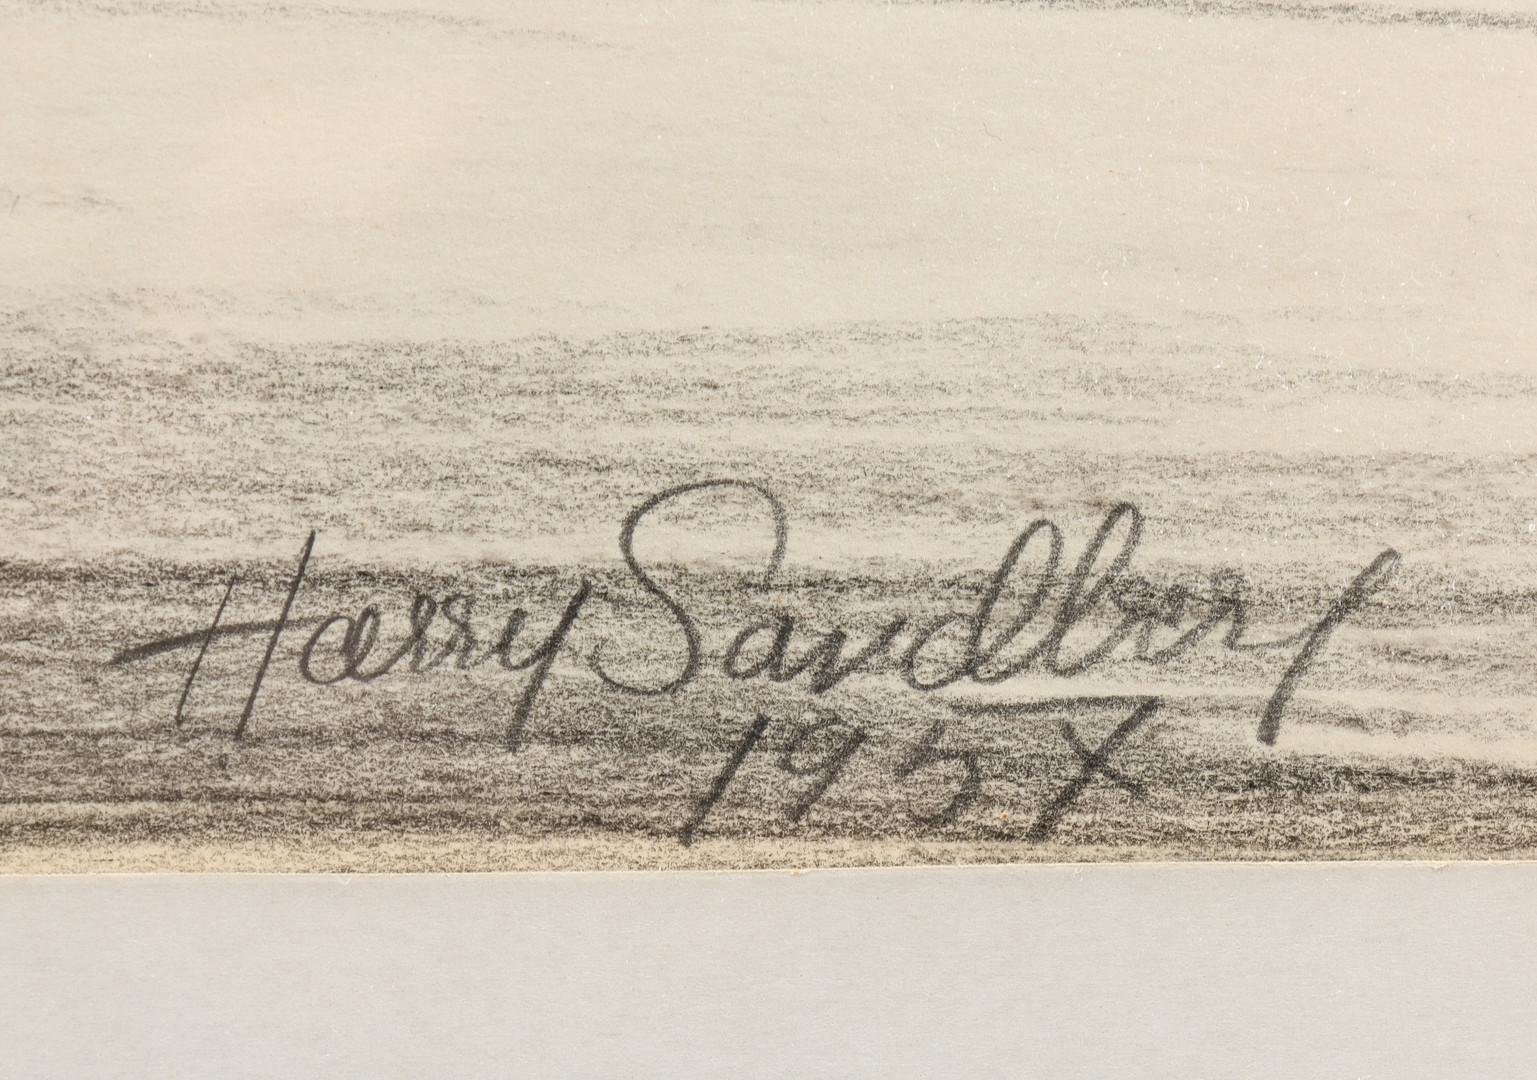 Harry Sandberg
1957